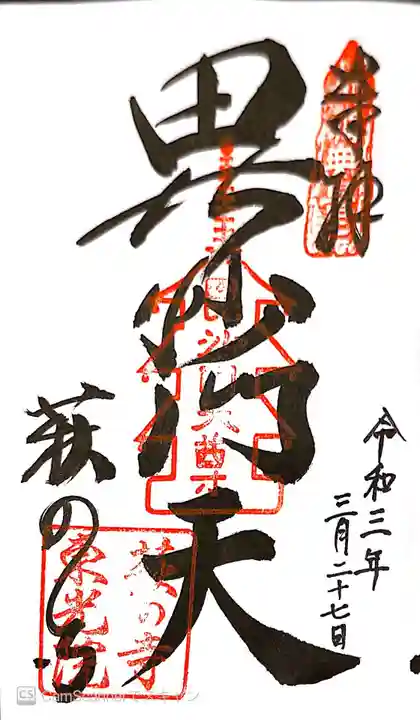 奉拝
令和三年
三月二十七日
毘沙門天
毘沙門天尊
萩の寺
萩の寺
東光院
CS CamScanner でスキャン